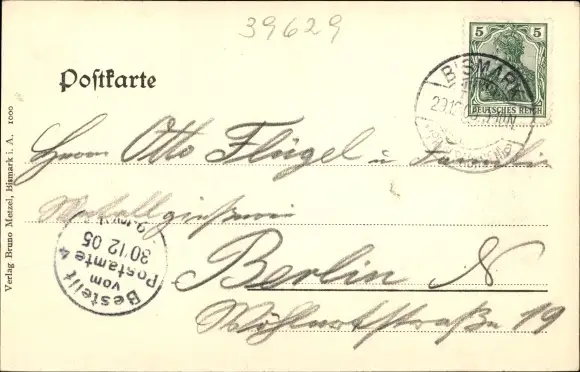 39629
5 5
DEUTSCHES REICH
BISMARK
29.12.05
Postkarte
Herrn Otto Flügel u Familie
Metallgießerei
Berlin N
Wöhlertstraße 19
Bestellt
vom
Postamte 4
30/12 05
Verlag Bruno Metzel, Bismark i. A. 1000